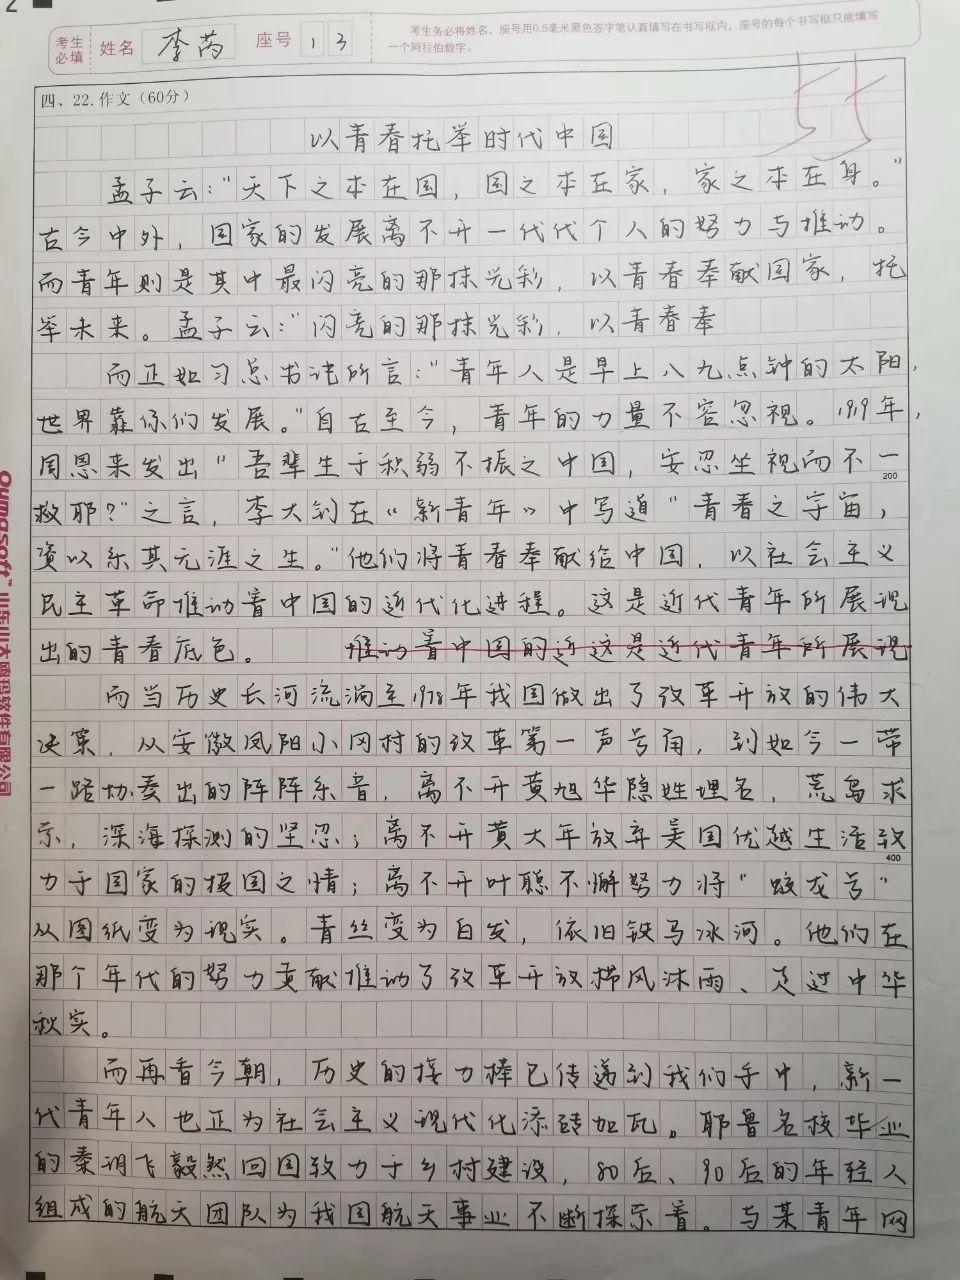 2
考生必填 姓名 李芮 座号 1 3 考生务必将姓名、座号用0.5毫米黑色签字笔认真填写在书写框内，座号的每个书写框只能填写
一个阿拉伯数字。
四、22.作文（60分）
以青春托举时代中国
孟子云："天下之本在国，国之本在家，家之本在身。"
古今中外，国家的发展离不开一代代个人的努力与推动。
而青年则是其中最闪亮的那抹光彩，以青春奉献国家，托
举未来。孟子云："闪亮的那抹光彩，以青春奉
而正如习总书记所言："青年人是早上八九点钟的太阳，
世界靠你们发展。"自古至今，青年的力量不容忽视。1919年，
周恩来发出"吾辈生于积弱不振之中国，安忍坐视而不一
200
救耶？"之言，李大钊在《新青年》中写道"青春之宇宙，
资以乐其无涯之生。"他们将青春奉献给中国，以社会主义
民主革命推动着中国的近代化进程。这是近代青年所展现
出的青春底色。 推动着中国的近这是近代青年所展现
而当历史长河流淌至1978年我国做出了改革开放的伟大
决策，从安徽凤阳小冈村的改革第一声号角，到如今一带
一路协奏出的阵阵乐音，离不开黄旭华隐姓埋名，荒岛求
索，深海探测的坚忍；离不开黄大年放弃美国优越生活致
400
力于国家的报国之情；离不开叶聪不懈努力将"蛟龙号"
从图纸变为现实。青丝变为白发，依旧铁马冰河。他们在
那个年代的努力贡献推动了改革开放栉风沐雨、走过中华
秋实。
而再看今朝，历史的接力棒已传递到我们手中，新一
代青年人也正为社会主义现代化添砖加瓦。耶鲁名校毕业
的秦玥飞毅然回国致力于乡村建设，80后、90后的年轻人
组成的航天团队为我国航天事业不断探索着。与某青年网
Oumasoft 山东山大鸥玛软件有限公司